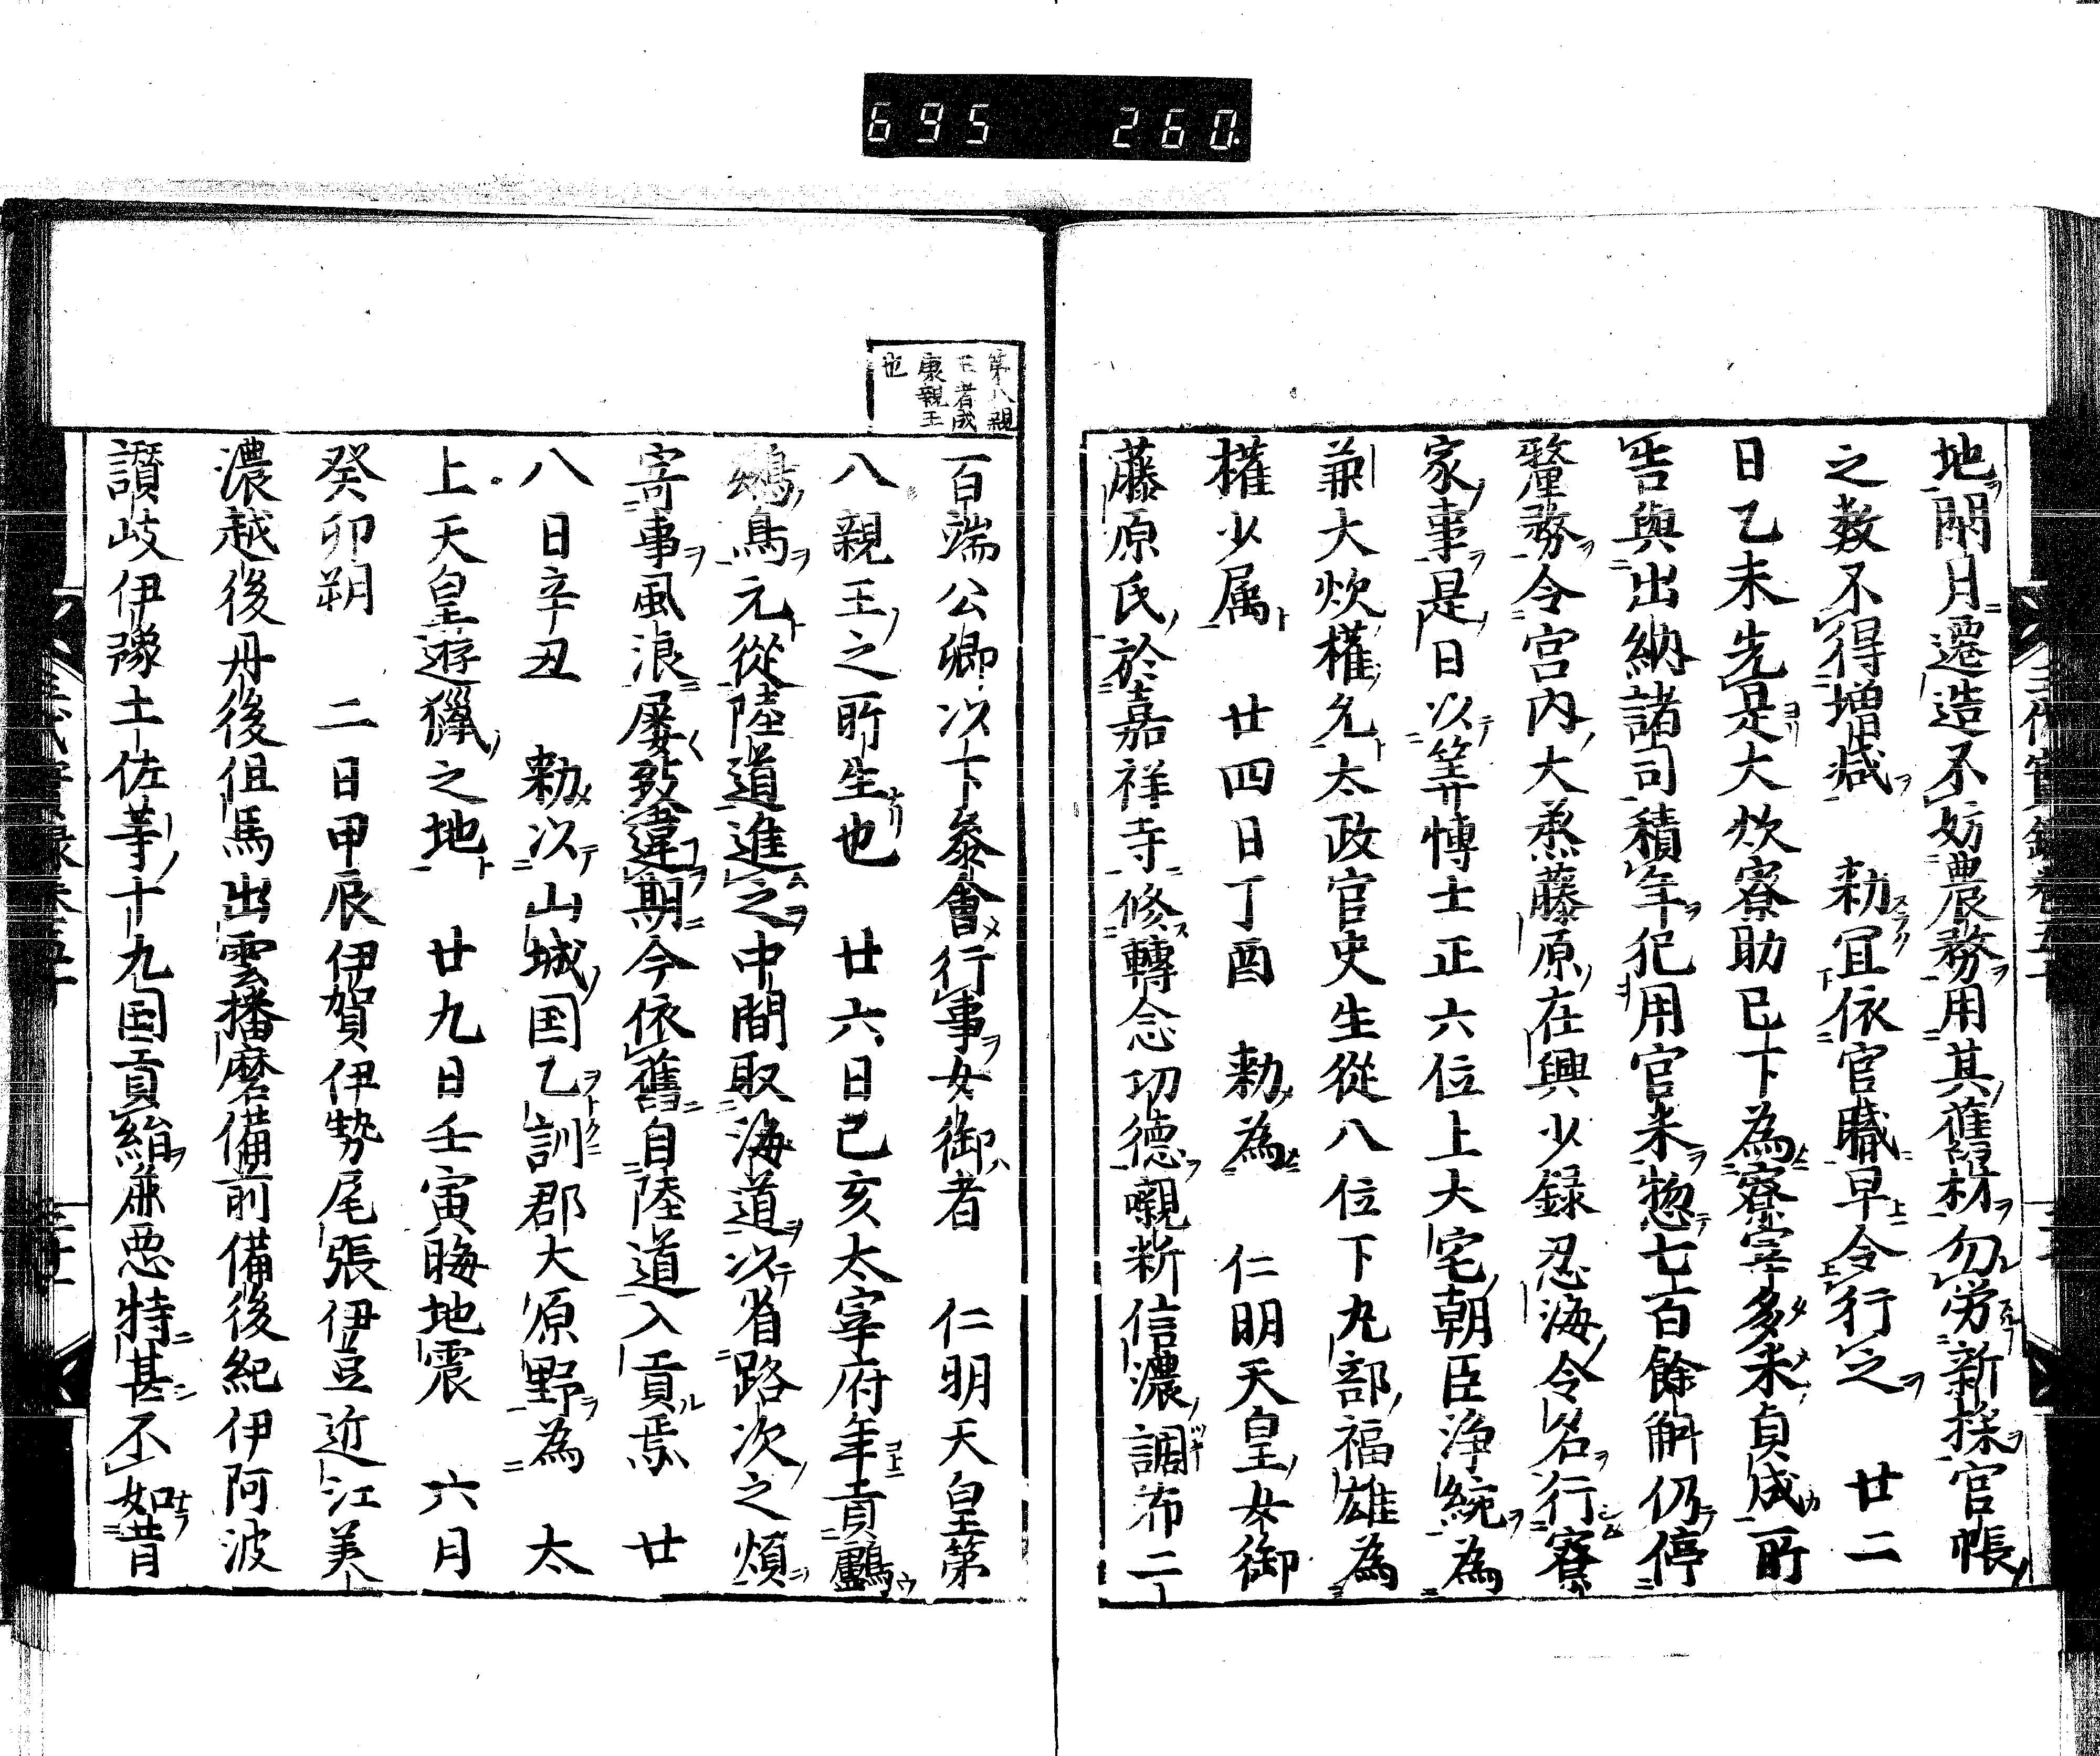 695 260
地閑月遷造不妨農務用其舊材勿労新採官帳
之数不得増减 勅冝依官職早令行之 廿二
日乙未先是大炊寮助已下為寮宰多米貞成所
告與出納諸司積年犯用官米惣七百餘斛仍停
釐務令宫内大丞藤原在興少録忍海令名行寮
家事是日以筭愽士正六位上大宅朝臣浄統為
兼大炊權允太政官史生從八位下丸部福雄為
權少属 廿四日丁酉 勅為 仁明天皇女御
藤原氏於嘉祥寺修轉念功德嚫新信濃調布二
百端公卿以下叅會行事女御者 仁明天皇第
八親王之所生也 廿六日己亥太宰府年貢鸕
鷀鳥元從陸道進之中間取海道以省路次之煩
寄事風浪屡致違期今依舊自陸道入貢焉 廿
八日辛丑 勅以山城国乙訓郡大原野為 太
上天皇遊獵之地 廿九日壬寅晦地震 六月
癸卯朔 二日甲辰伊賀伊勢尾張伊豆近江美
濃越後丹後但馬出雲播磨備前備後紀伊阿波
讃岐伊豫土佐等十九国貢絹麁悪特甚不如昔
第八親
王者成
康親王
也